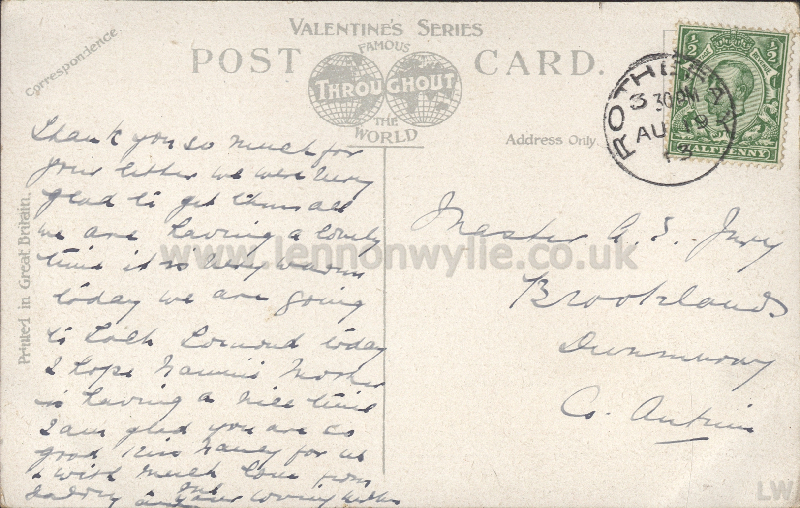 VALENTINE'S SERIES
POST CARD.
FAMOUS
THROUGHOUT
THE
WORLD
Correspondence
Address Only.
Printed in Great Britain.
½ ½
HALFPENNY
ROTHESAY
3 30PM
AU 19
13
Thank you so much for
your letter we were very
glad to get them all
we are having a lovely
time it is very warm
today we are going
to Loch Lomond today
I hope Mother
is having a nice time
I am glad you are so
good Kiss Nancy for us
with much love from
daddy and your loving mother
Master A. S. Jury
Brooklands
Dunmurry
Co. Antrim
www.lennonwylie.co.uk
LW